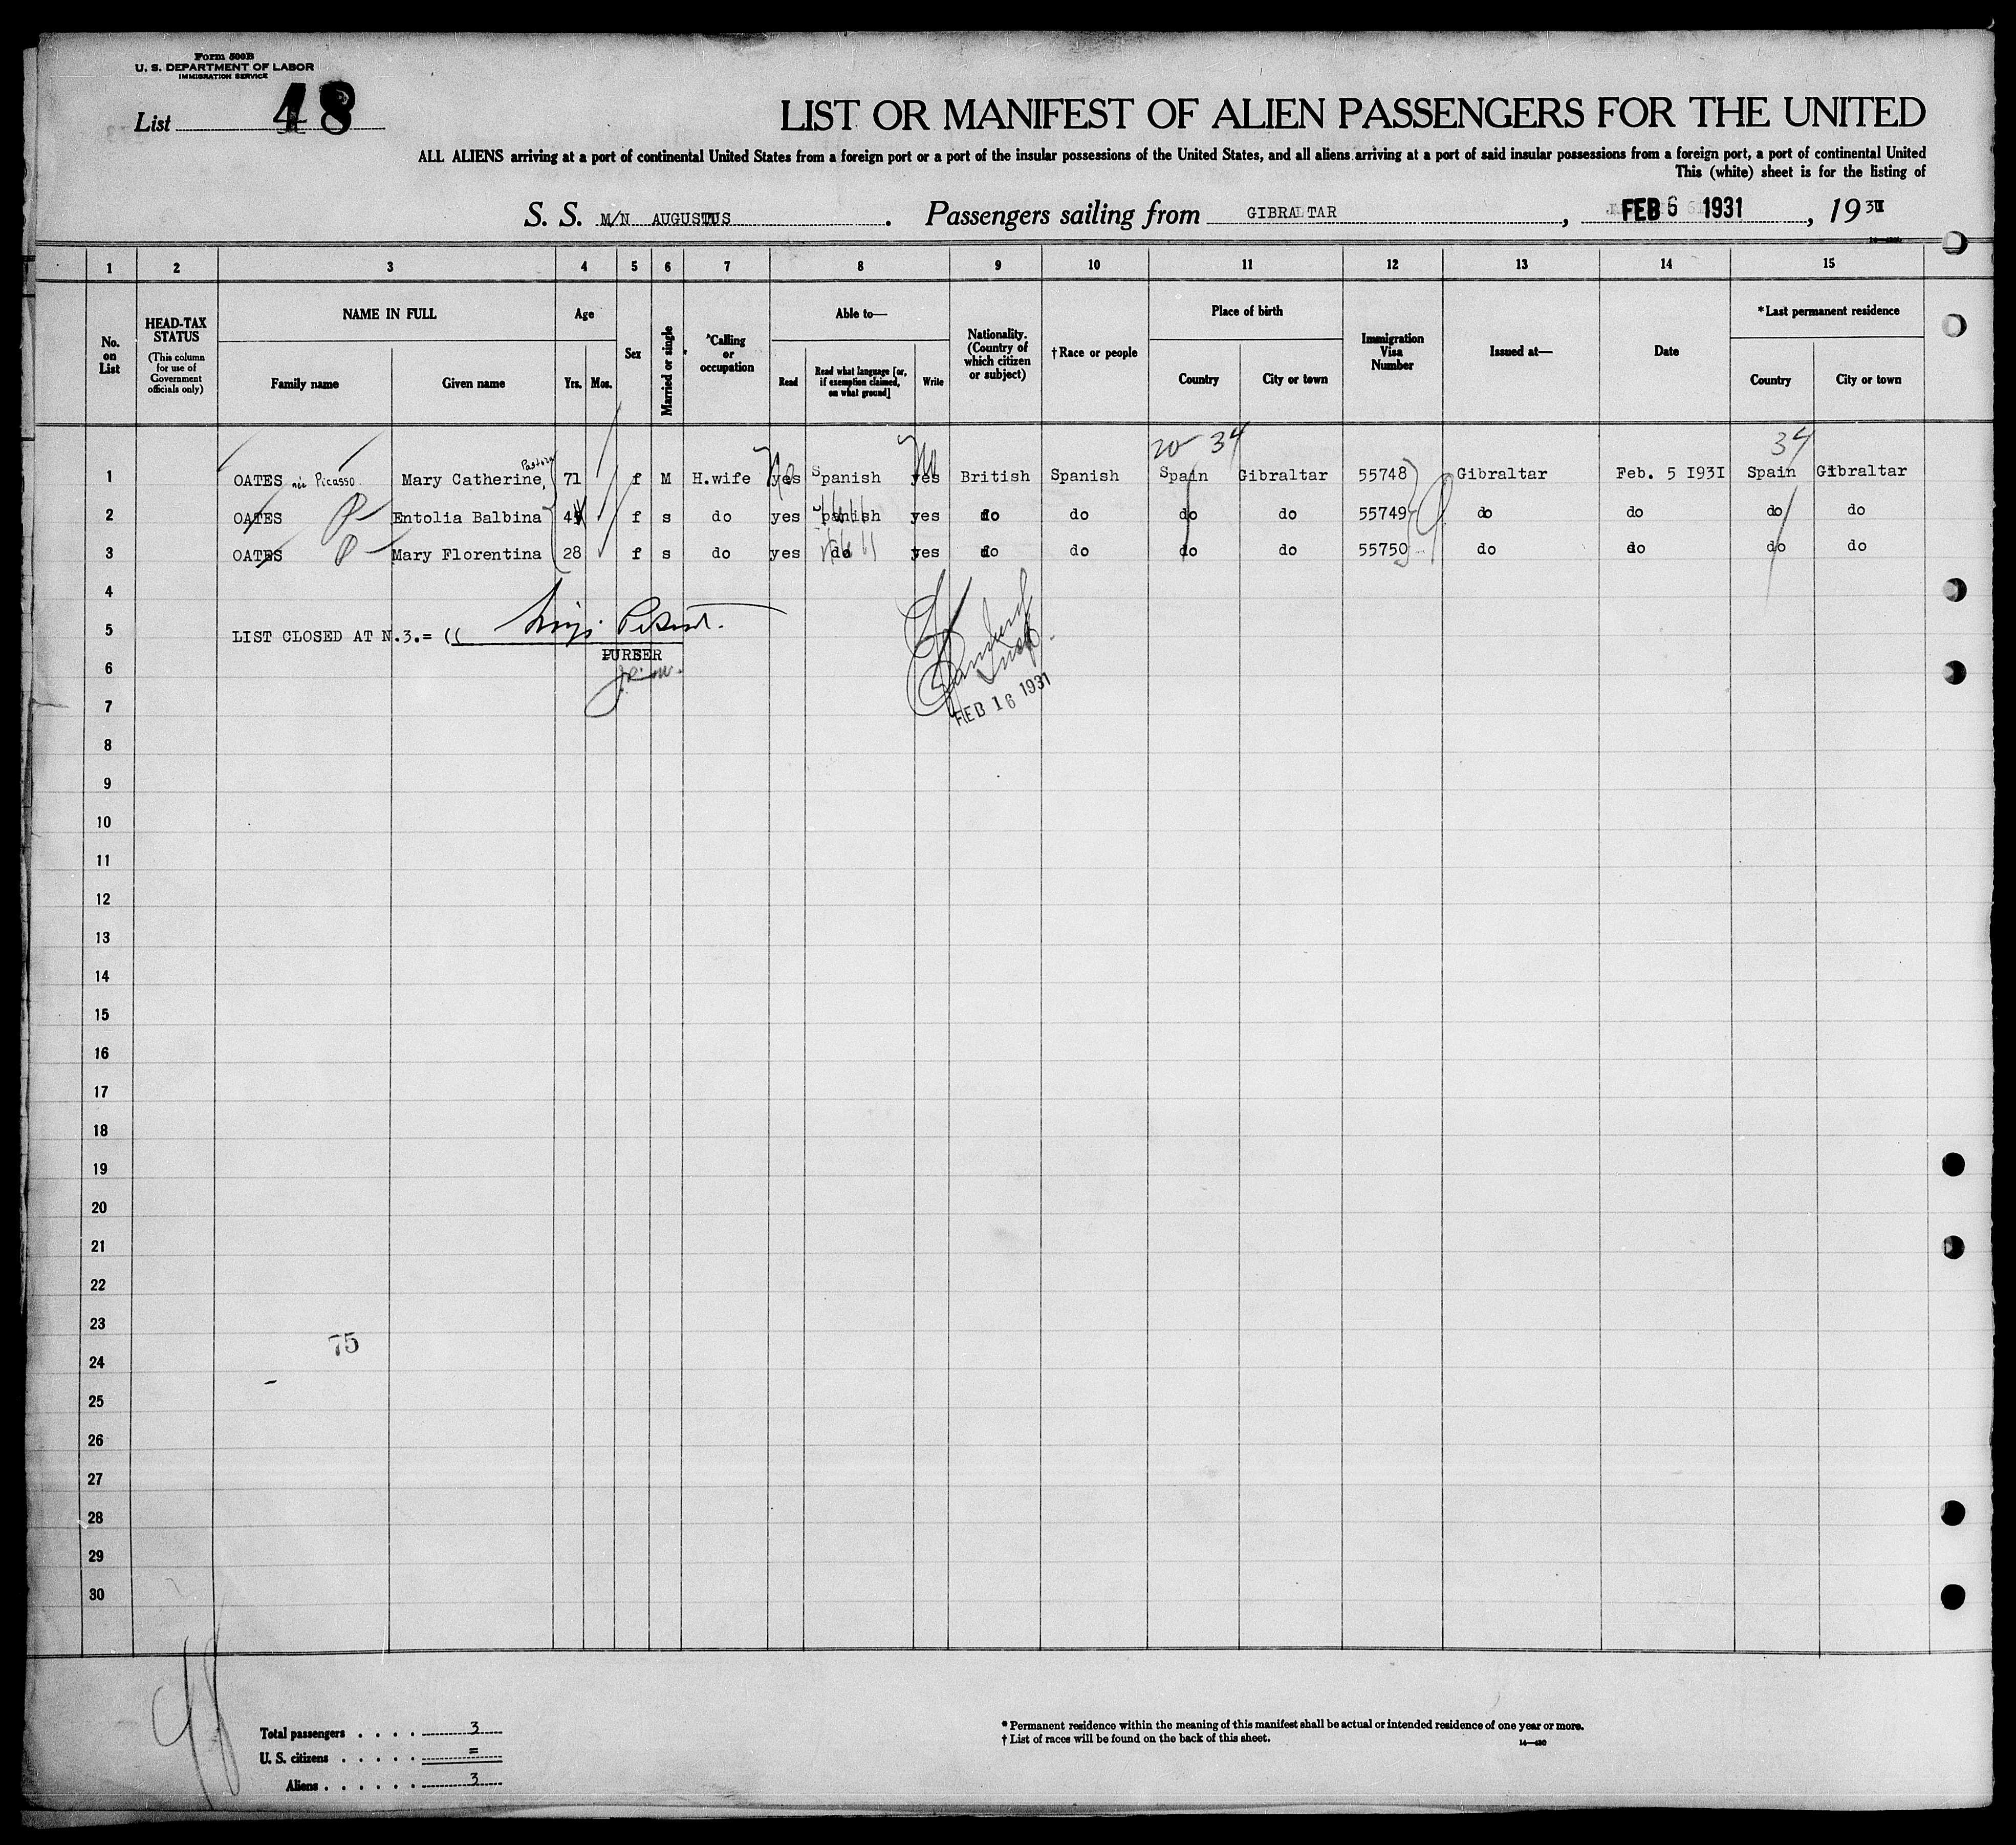 Form 500B
U. S. DEPARTMENT OF LABOR
IMMIGRATION SERVICE
List 48
LIST OR MANIFEST OF ALIEN PASSENGERS FOR THE UNITED
ALL ALIENS arriving at a port of continental United States from a foreign port or a port of the insular possessions of the United States, and all aliens arriving at a port of said insular possessions from a foreign port, a port of continental United
This (white) sheet is for the listing of
S. S. M/N AUGUSTUS. Passengers sailing from GIBRALTAR, FEB 6 1931, 1931
1 2 3 4 5 6 7 8 9 10 11 12 13 14 15
No. on List
HEAD-TAX STATUS
(This column for use of Government officials only)
NAME IN FULL
Family name
Given name
Age
Yrs. Mos.
Sex
Married or single
*Calling or occupation
Able to—
Read
Read what language [or, if exemption claimed, on what ground]
Write
Nationality. (Country of which citizen or subject)
†Race or people
Place of birth
Country
City or town
Immigration Visa Number
Issued at—
Date
*Last permanent residence
Country
City or town
20 34 34
1 OATES née Picasso Mary Catherine, Pastora 71 f M H.wife yes No Spanish yes No British Spanish Spain Gibraltar 55748 Gibraltar Feb. 5 1931 Spain Gibraltar
2 OATES P Entolia Balbina f s do yes yes do do do do 55749 do do do do
3 OATES P Mary Florentina 28 f s do yes do yes do do do do 55750 do do do do
4
5 LIST CLOSED AT N.3.=
PURSER
6
7
FEB 16 1931
8
9
10
11
12
13
14
15
16
17
18
19
20
21
22
23
75
24
25
26
27
28
29
30
48
Total passengers . . . . 3
U. S. citizens . . . . . =
Aliens . . . . . . 3
* Permanent residence within the meaning of this manifest shall be actual or intended residence of one year or more.
† List of races will be found on the back of this sheet.
14—430